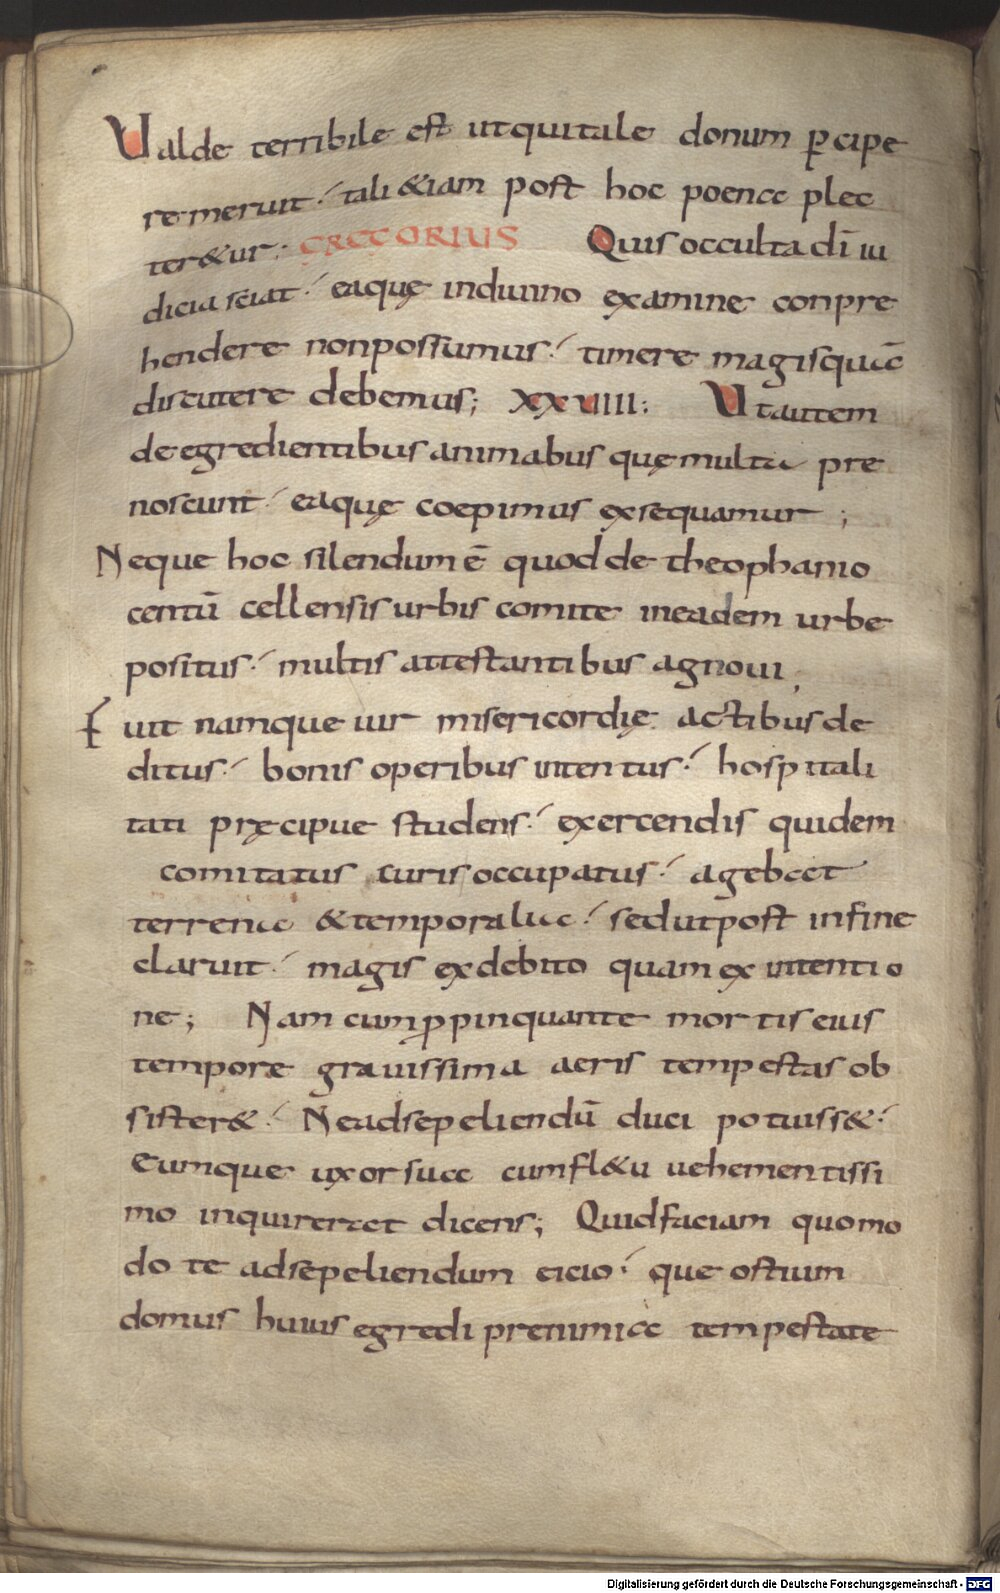 Ualde terribile est utqui tale donum p̱cipe
re meruit· tali &iam post hoc poena plec
ter&ur· GREGORIUS Quis occulta dī iu
dicia sciat· eaquę indiuino examine conpre
hendere nonpossumus· timere magisquā
discutere debemus; XXVIIII: Utautem
deegredientibus animabus quę multa pre
noscunt· eaquę coepimus exsequamur;
Neque hoc silendum ē quodde theophanio
centū cellensis urbis comite ineadem urbe
positus· multis attestantibus agnoui,
Fuit namque uir misericordię actibus de
ditus· bonis operibus intentus· hospitali
tati pręcipue studens· exercendis quidem
comitatus curis occupatus· agebat
terrena &temporalia· sedutpost infine
claruit· magis exdebito quam ex intentio
ne; Nam cum ꝓpinquante mortis eius
tempore grauissima aeris tempestas ob
sister&· Neadsepeliendū duci potuiss&·
Eumque uxor sua cumfl&u uehementissi
mo inquireret dicens; Quidfaciam quomo
do te adsepeliendum eicio· que ostium
domus huius egredi prenimia tempestate
Digitalisierung gefördert durch die Deutsche Forschungsgemeinschaft - DFG